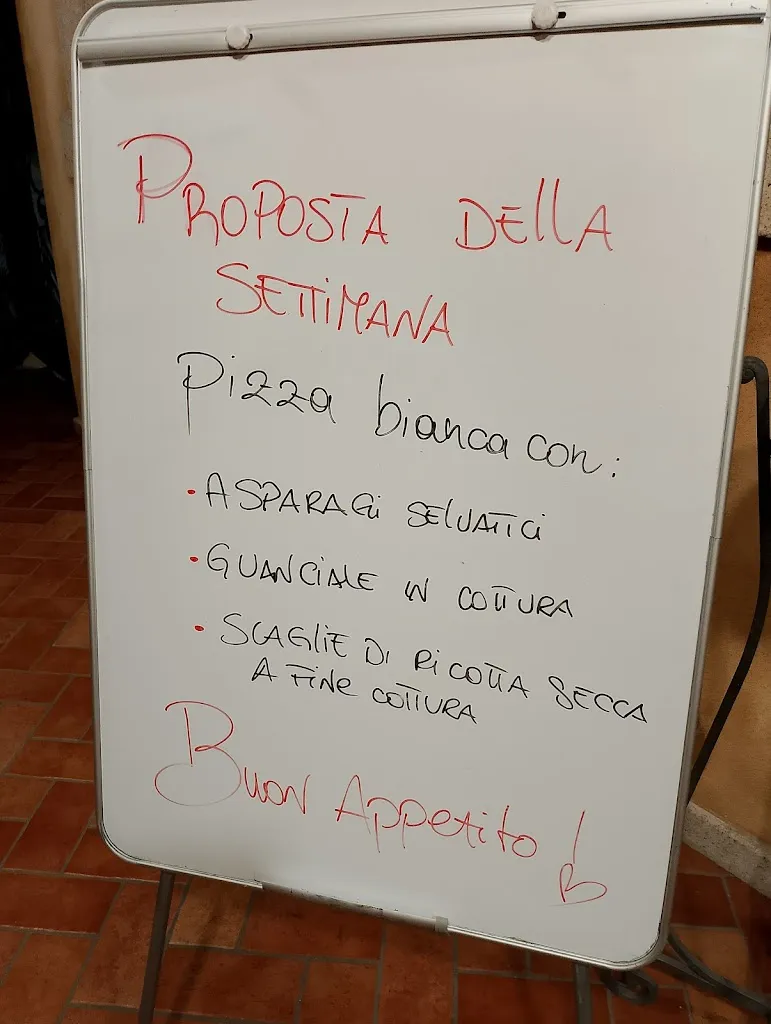 PROPOSTA DELLA
SETTIMANA
Pizza bianca con:
• ASPARAGI SELVATICI
• GUANCIALE IN COTTURA
• SCAGLIE DI RICOTTA SECCA
A FINE COTTURA
BUON APPETITO!